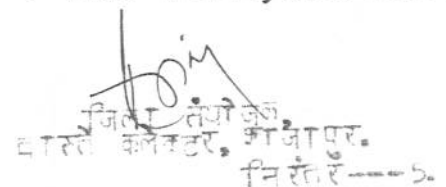 जिला संयोजक
वास्ते कलेक्टर, शाजापुर.
निरंतर----5.